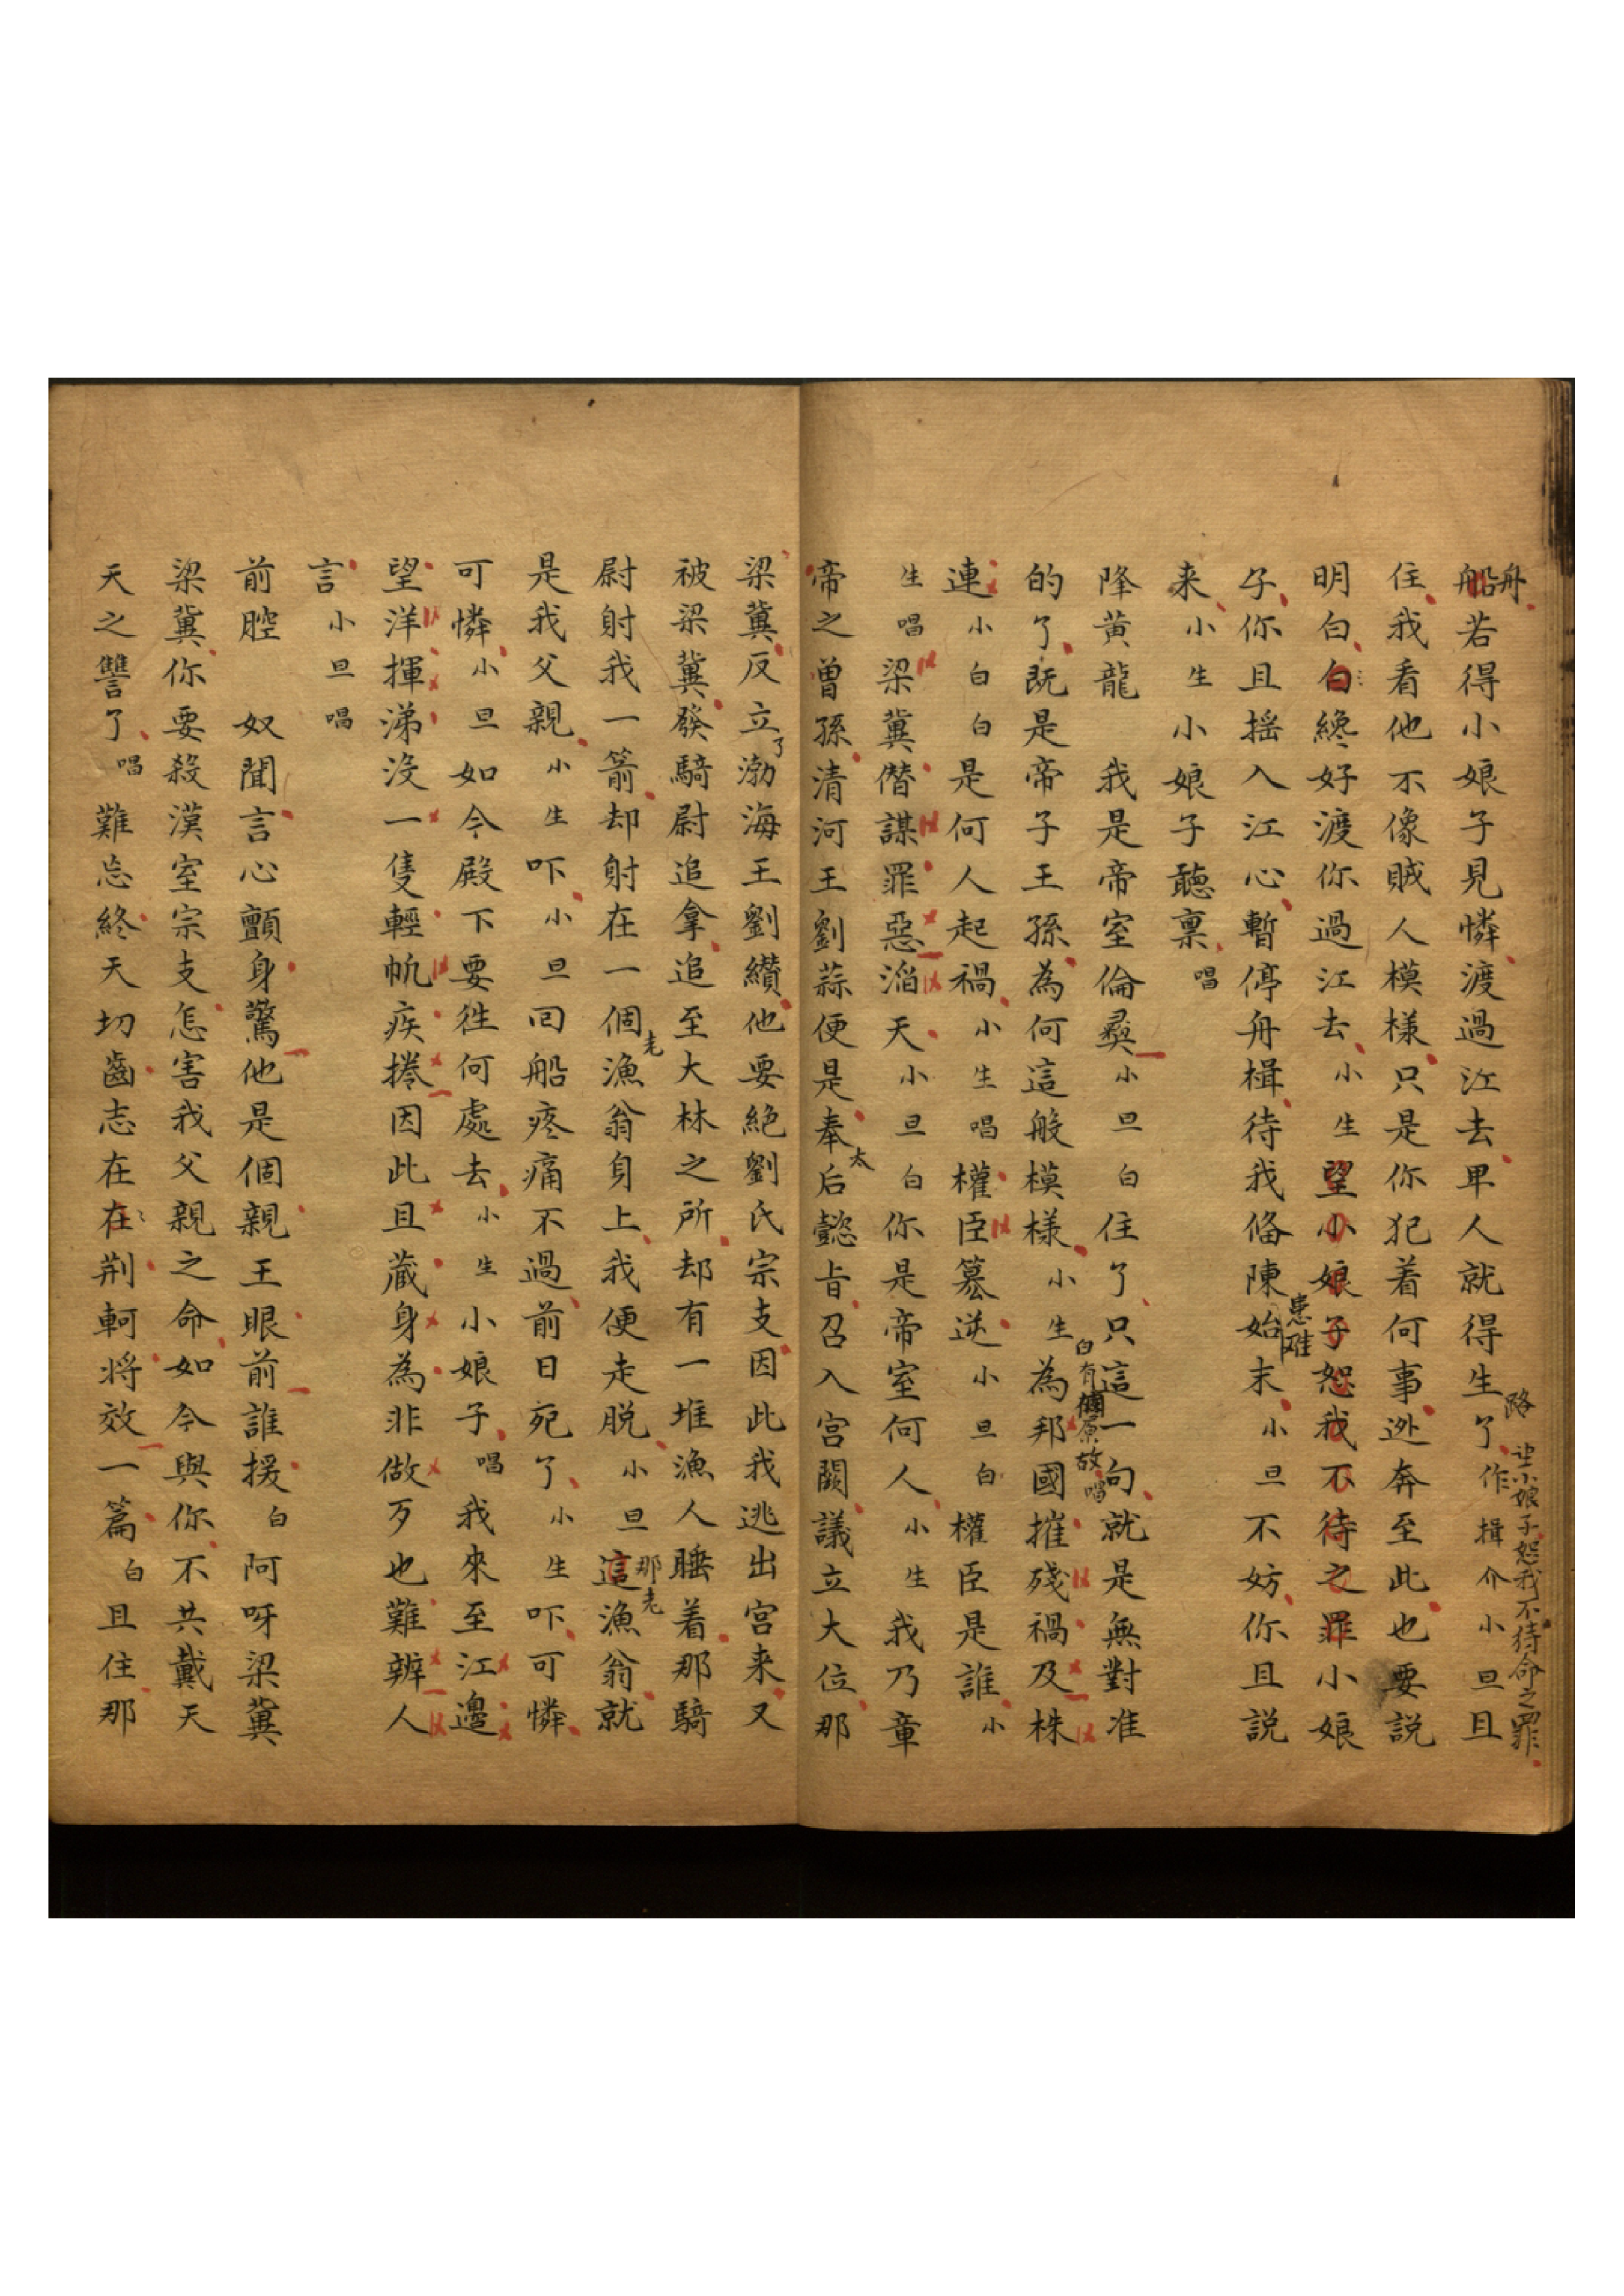 船舟若得小娘子見憐渡過江去卑人就得生路了作揖介小旦且
望小娘子恕我不待命之罪
住我看他不像賊人模樣只是你犯着何事逊奔至此也要説
明白白纔好渡你過江去小生望小娘子恕我不待之罪小娘
子你且摇入江心暫停舟楫待我俻陳始末小旦不妨你且説
患难
来小生小娘子聽禀唱
降黄龍 我是帝室倫彞小旦白住了只這一句就是無對准
的了既是帝子王孫為何這般模樣小生為邦國摧殘禍及株
白有個原故唱
連小白白是何人起禍小生唱權臣簒逆小旦白權臣是誰小
生唱梁冀僭謀罪惡滔天小旦白你是帝室何人小生我乃章
帝之曾孫清河王劉蒜便是奉太后懿旨召入宫闕議立大位那
梁冀反立了渤海王劉纘他要絶劉氏宗支因此我逃出宫来又
被梁冀發騎尉追拿追至大林之所却有一堆漁人睡着那騎
尉射我一箭却射在一個老漁翁身上我便走脱小旦這那老漁翁就
是我父親小生吓小旦囘船疼痛不過前日死了小生吓可憐
可憐小旦如今殿下要徃何處去小生小娘子唱我來至江邊
望洋揮涕没一隻輕帆疾捲因此且藏身為非做歹也難辨人
言小旦唱
前腔 奴聞言心顫身驚他是個親王眼前誰援白阿呀梁冀
梁冀你要殺漢室宗支怎害我父親之命如今與你不共戴天
天之讐了唱難忘終天切齒志在在荆軻将效一篇白且住那